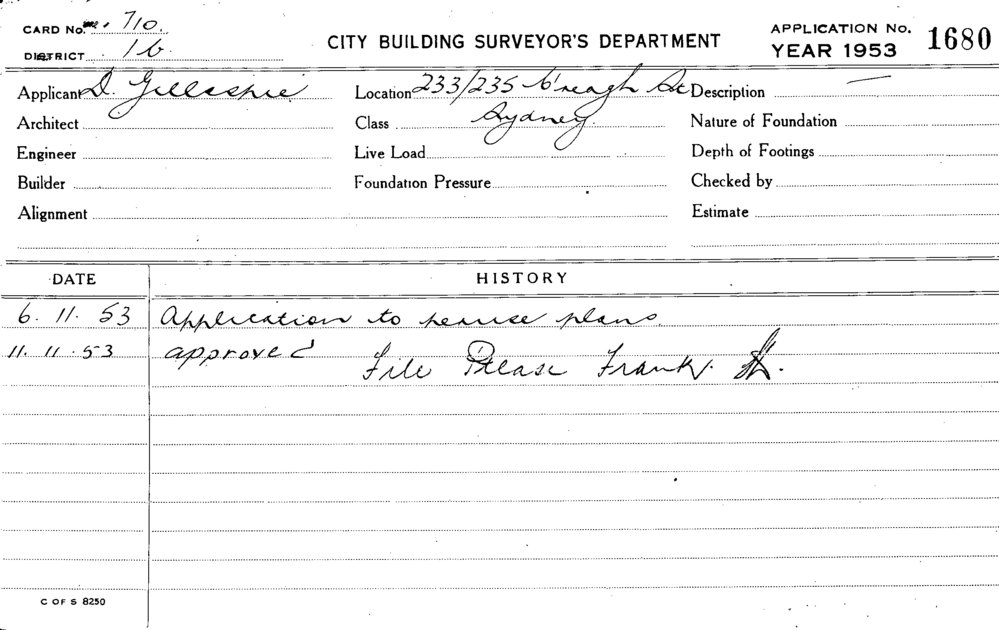 CARD No. 710.
DISTRICT 16.
CITY BUILDING SURVEYOR'S DEPARTMENT
APPLICATION No. 1680
YEAR 1953
Applicant D. Gillespie
Location 233/235 C'reagh St Sydney.
Description —
Architect
Class
Nature of Foundation
Engineer
Live Load
Depth of Footings
Builder
Foundation Pressure
Checked by
Alignment
Estimate
DATE HISTORY
6. 11. 53 Application to peruse plans.
11. 11. 53 approved
File Please Frank.
C OF S 8250